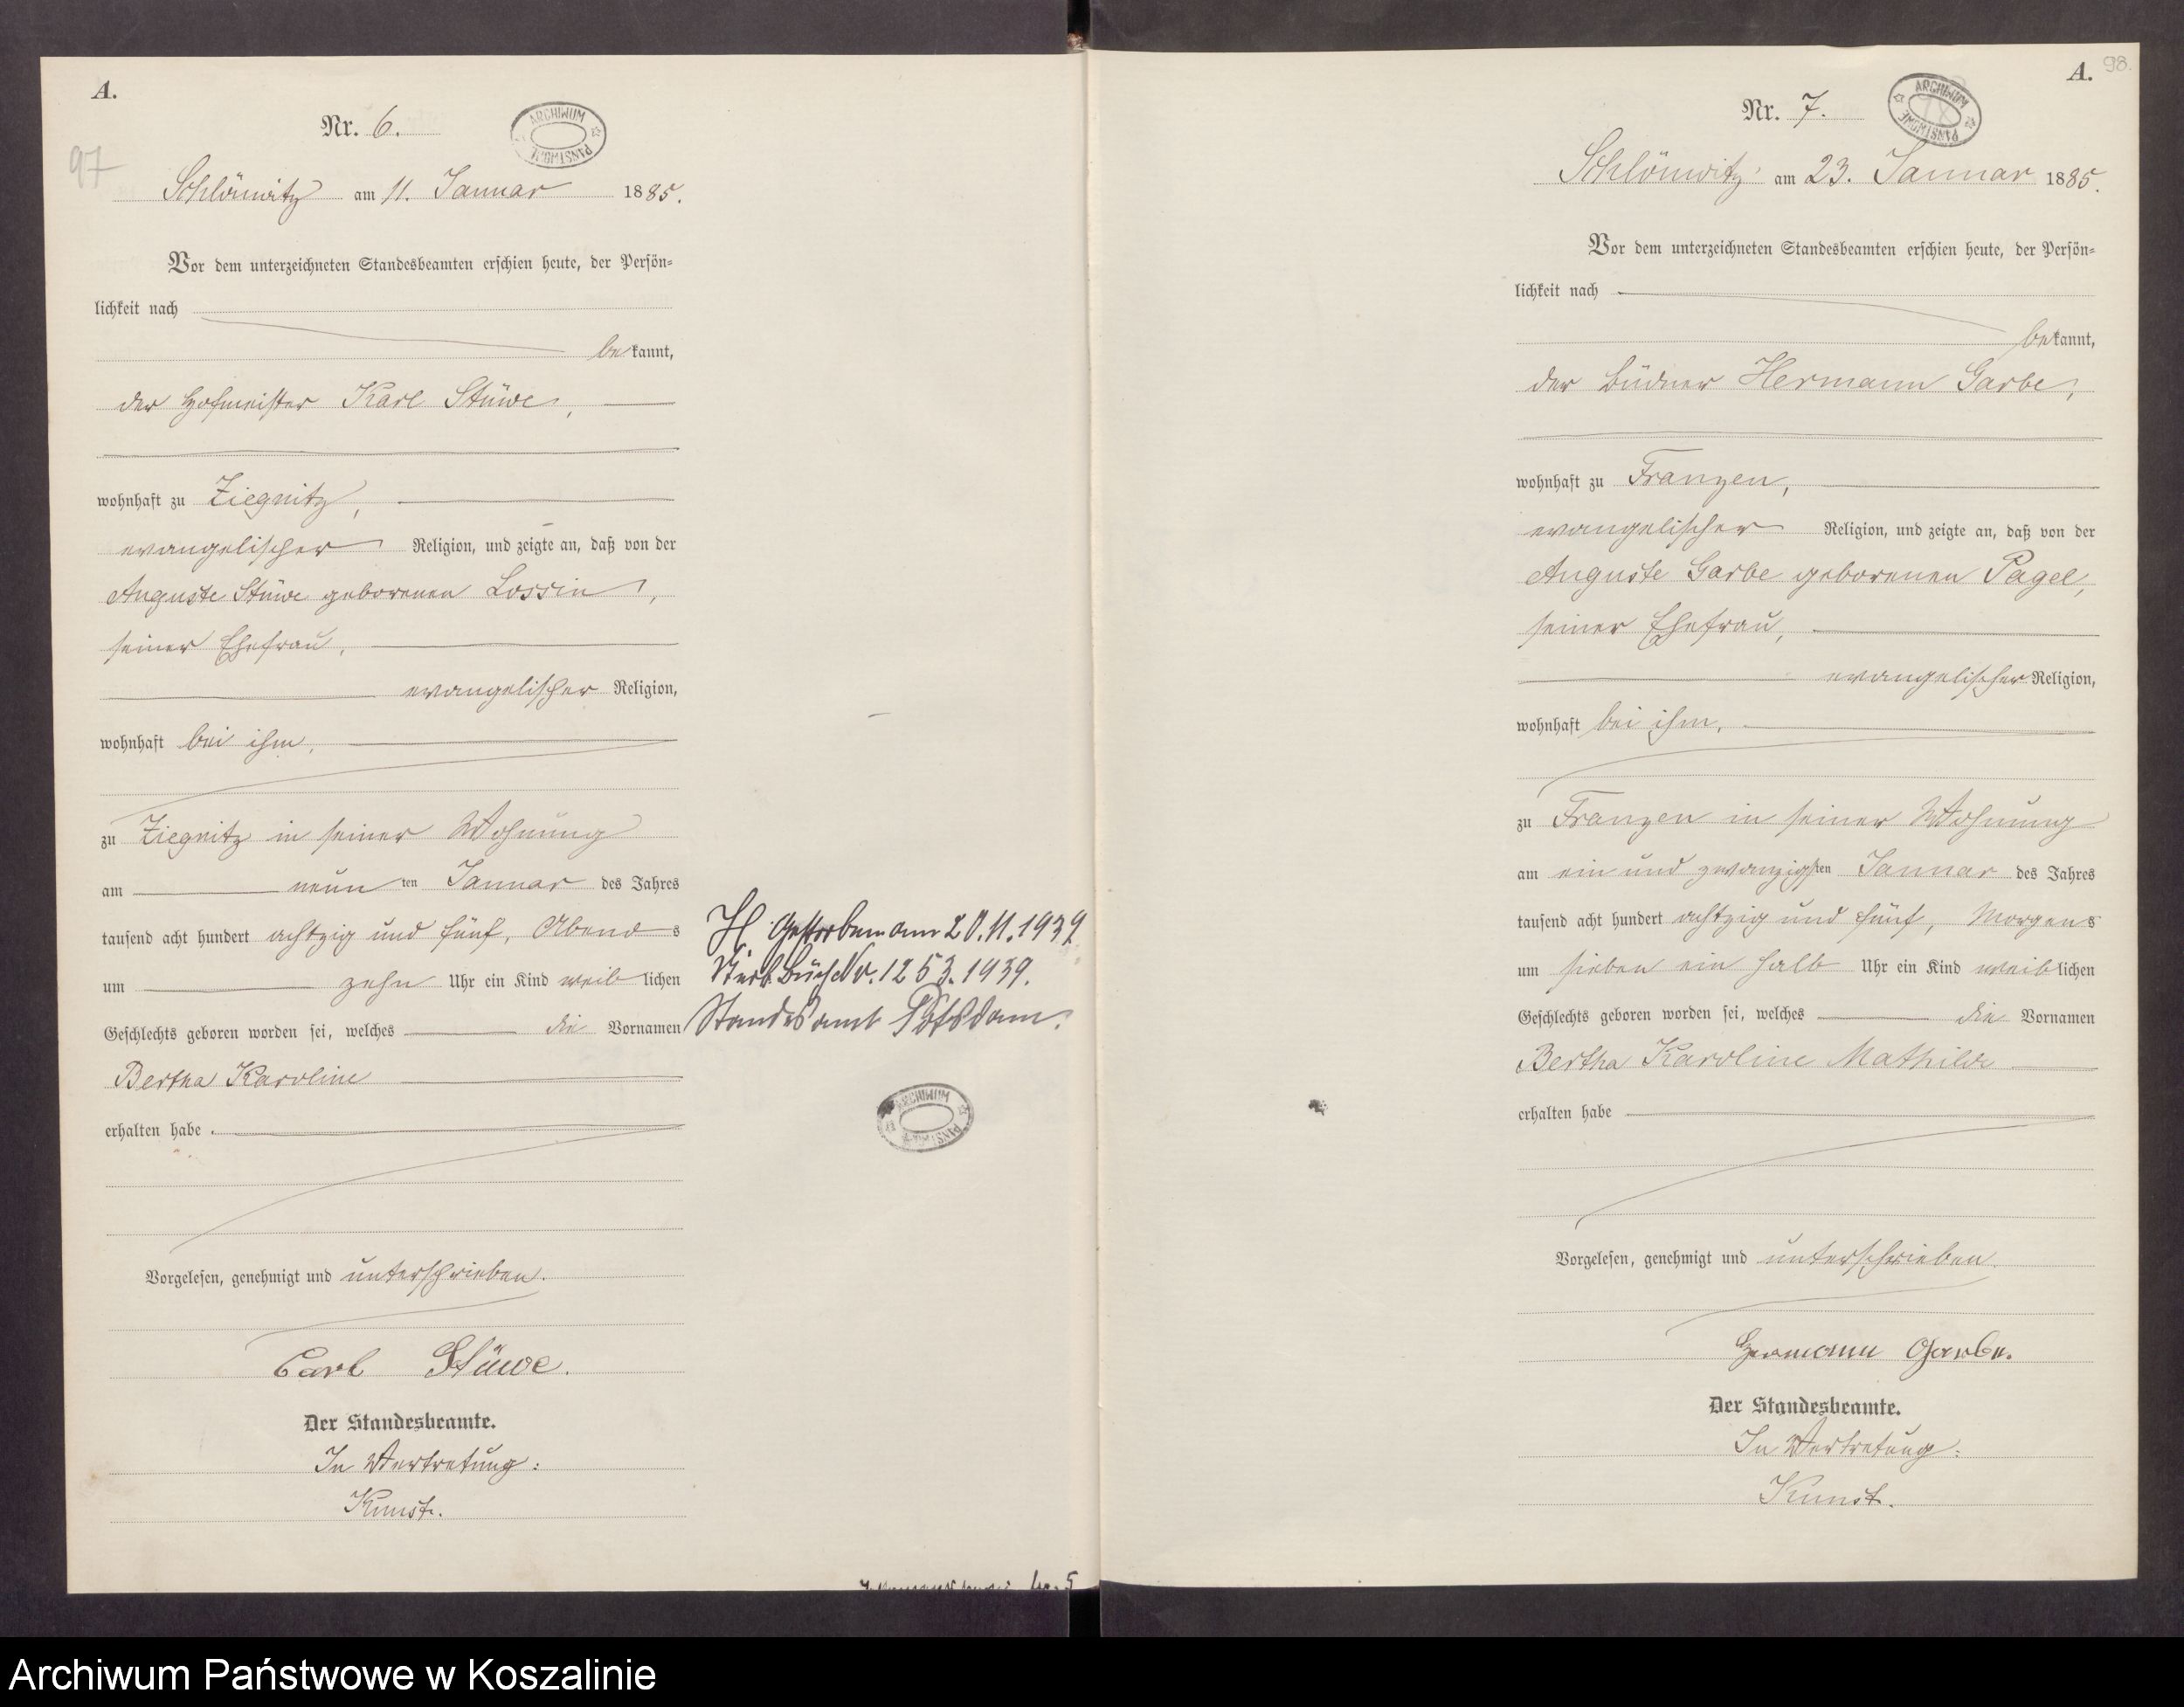 A.
Nr. 6.
ARCHIWUM PAŃSTWOWE
97
Schlönwitz am 11. Januar 1885.
Vor dem unterzeichneten Standesbeamten erschien heute, der Persön-
lichkeit nach
bekannt,
der Hofmeister Karl Stüwe,
wohnhaft zu Ziegnitz,
evangelischer Religion, und zeigte an, daß von der
Auguste Stüwe geborenen Lossin,
seiner Ehefrau,
evangelischer Religion,
wohnhaft bei ihm,
zu Ziegnitz in seiner Wohnung
am neunten Januar des Jahres
tausend acht hundert achtzig und fünf, Abends
um zehn Uhr ein Kind weiblichen
Geschlechts geboren worden sei, welches die Vornamen
Bertha Karoline
erhalten habe.
Vorgelesen, genehmigt und unterschrieben.
Carl Stüwe.
Der Standesbeamte.
In Vertretung:
Kunst.
H. Gestorben am 20.11.1939
Sterb.Buch Nr. 1253.1939.
Standesamt Potsdam.
ARCHIWUM PAŃSTWOWE
A.
98.
Nr. 7.
ARCHIWUM PAŃSTWOWE
Schlönwitz am 23. Januar 1885.
Vor dem unterzeichneten Standesbeamten erschien heute, der Persön-
lichkeit nach
bekannt,
der Büdner Hermann Garbe,
wohnhaft zu Franzen,
evangelischer Religion, und zeigte an, daß von der
Auguste Garbe geborenen Pagel,
seiner Ehefrau,
evangelischer Religion,
wohnhaft bei ihm,
zu Franzen in seiner Wohnung
am ein und zwanzigsten Januar des Jahres
tausend acht hundert achtzig und fünf, Morgens
um sieben ein halb Uhr ein Kind weiblichen
Geschlechts geboren worden sei, welches die Vornamen
Bertha Karoline Mathilde
erhalten habe
Vorgelesen, genehmigt und unterschrieben.
Hermann Garbe.
Der Standesbeamte.
In Vertretung:
Kunst.
Archiwum Państwowe w Koszalinie